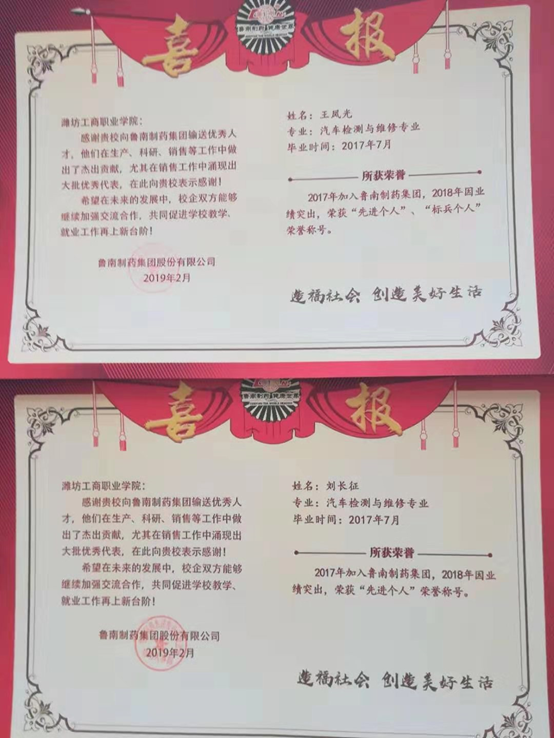 喜报
鲁南制药 健康世界
潍坊工商职业学院：
感谢贵校向鲁南制药集团输送优秀人
才，他们在生产、科研、销售等工作中做
出了杰出贡献，尤其在销售工作中涌现出
大批优秀代表，在此向贵校表示感谢！
希望在未来的发展中，校企双方能够
继续加强交流合作，共同促进学校教学、
就业工作再上新台阶！
鲁南制药集团股份有限公司
2019年2月
姓名：王凤光
专业：汽车检测与维修专业
毕业时间：2017年7月
所获荣誉
2017年加入鲁南制药集团，2018年因业
绩突出，荣获“先进个人”、“标兵个人”
荣誉称号。
造福社会 创造美好生活
喜报
鲁南制药 健康世界
潍坊工商职业学院：
感谢贵校向鲁南制药集团输送优秀人
才，他们在生产、科研、销售等工作中做
出了杰出贡献，尤其在销售工作中涌现出
大批优秀代表，在此向贵校表示感谢！
希望在未来的发展中，校企双方能够
继续加强交流合作，共同促进学校教学、
就业工作再上新台阶！
鲁南制药集团股份有限公司
2019年2月
姓名：刘长征
专业：汽车检测与维修专业
毕业时间：2017年7月
所获荣誉
2017年加入鲁南制药集团，2018年因业
绩突出，荣获“先进个人”荣誉称号。
造福社会 创造美好生活